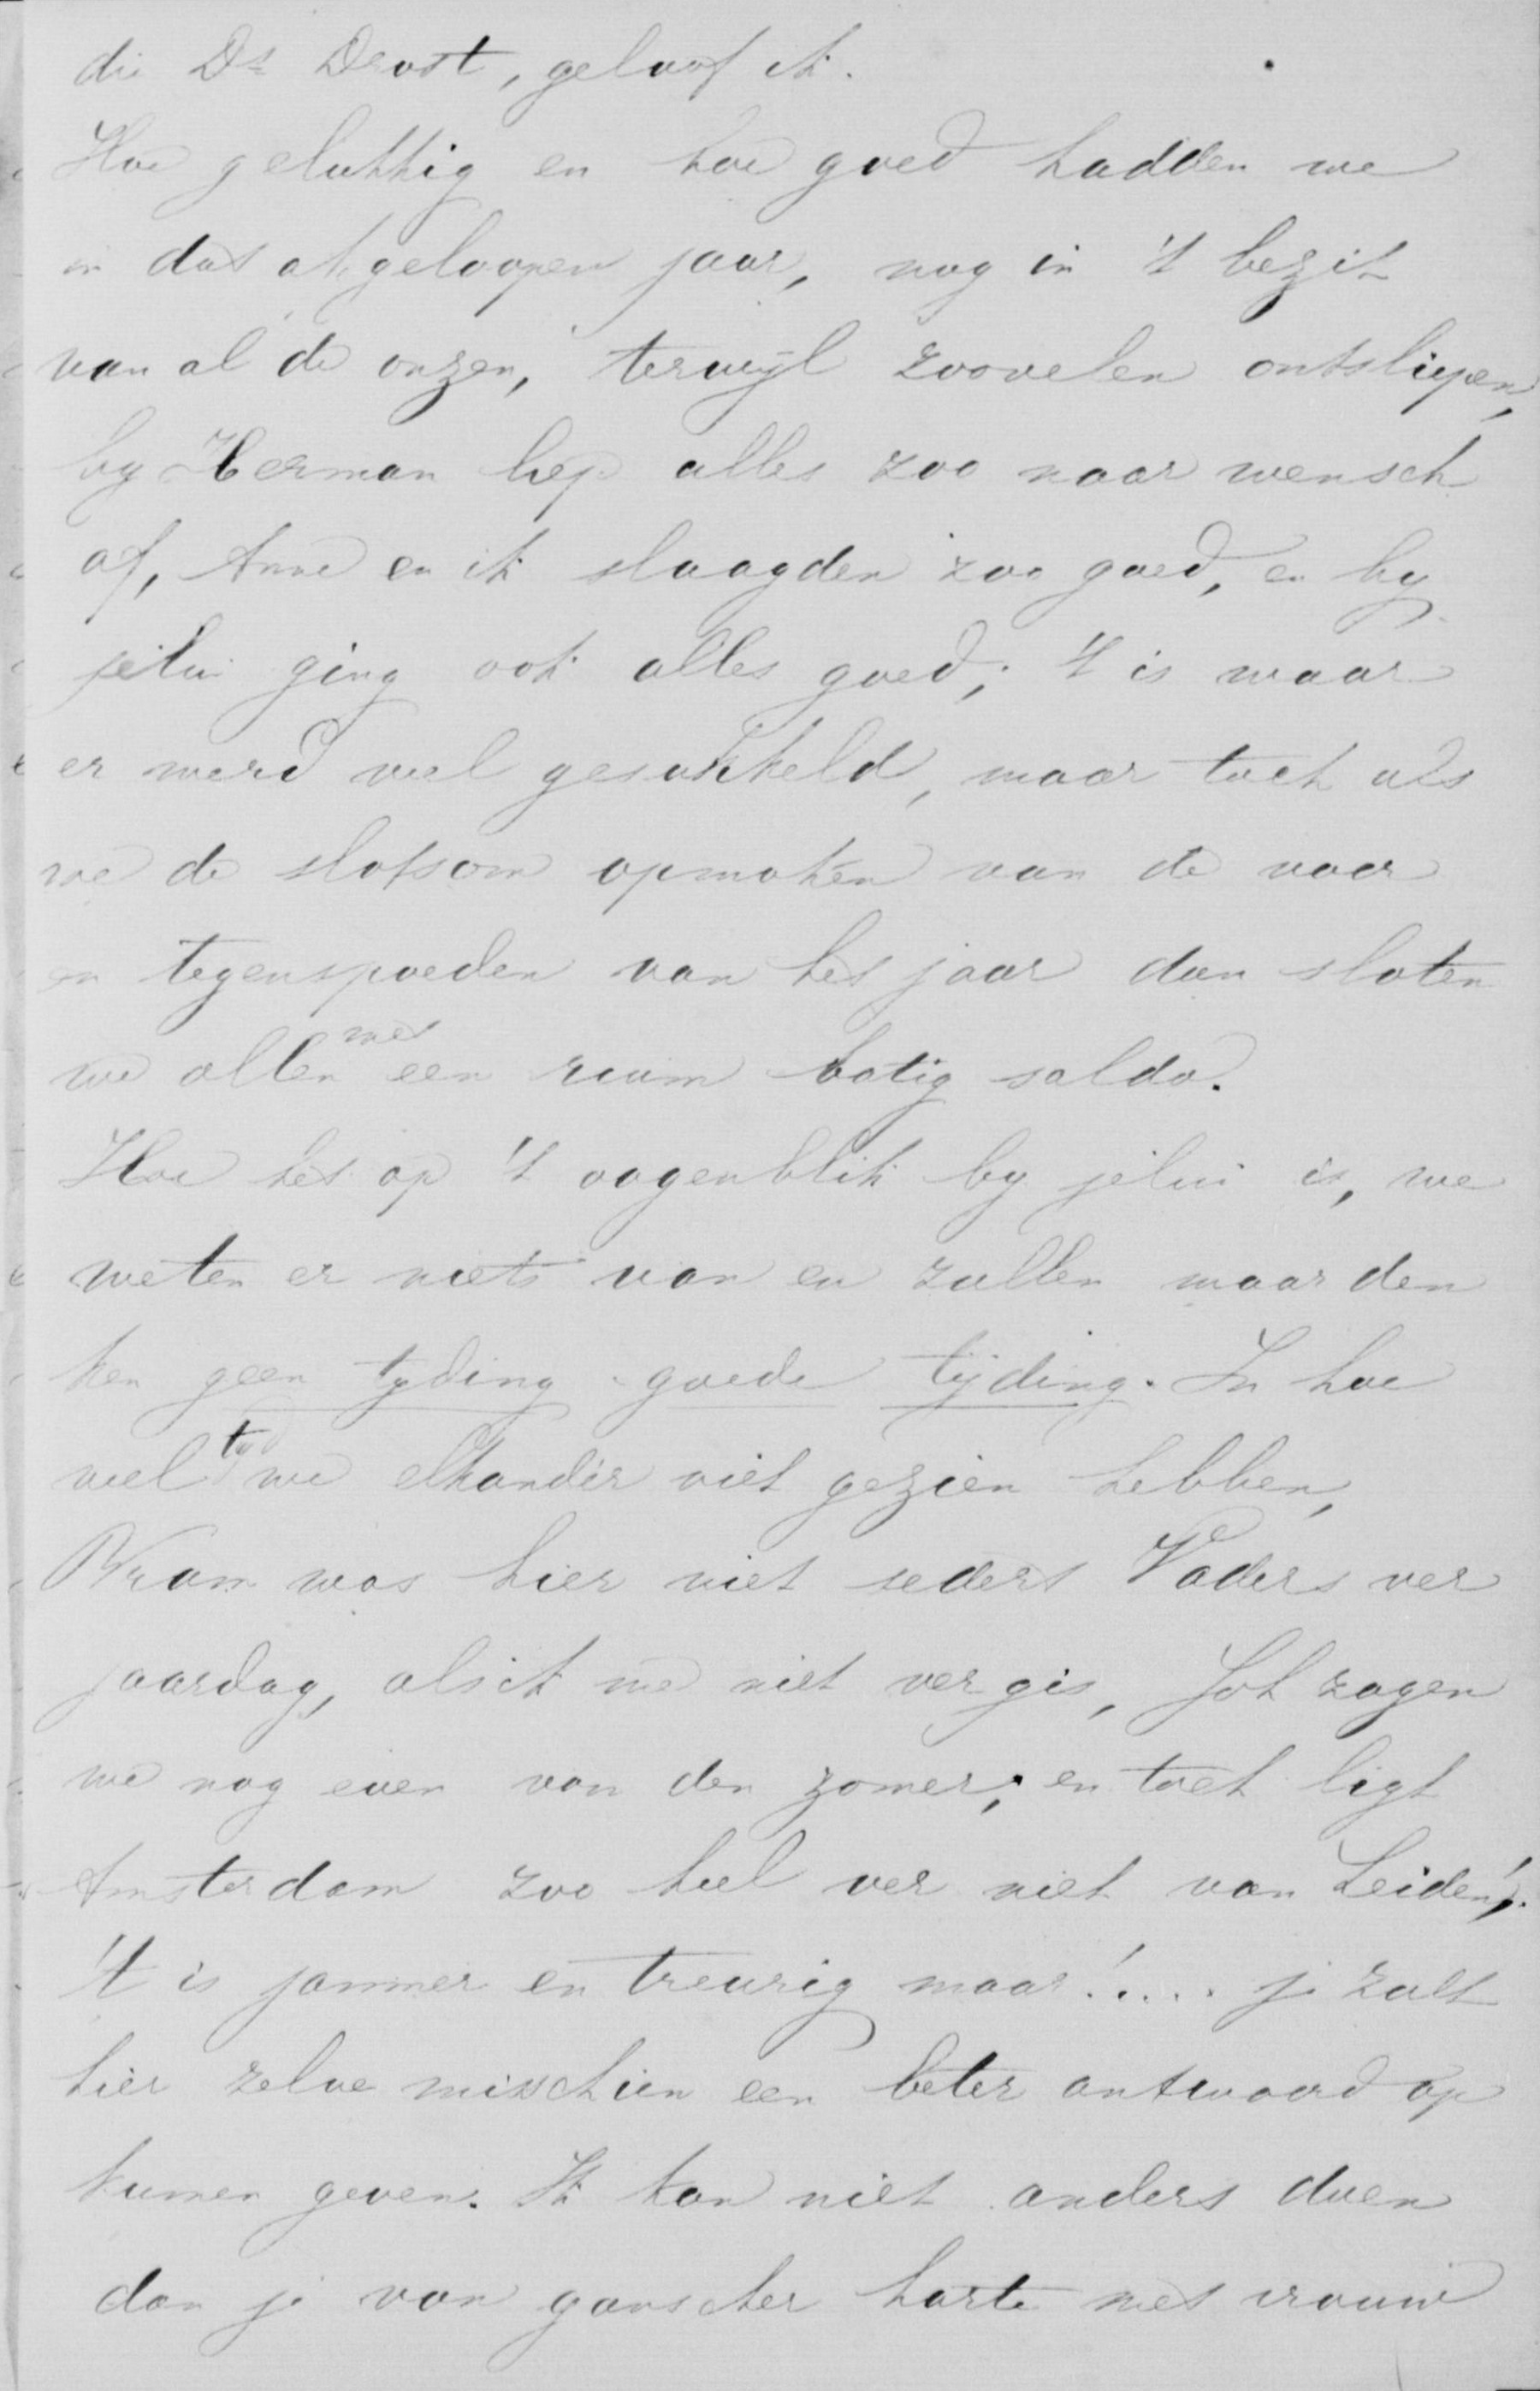 die Ds Drost, geloof ik.
Hoe gelukkig en hoe goed hadden we
in dat afgeloopen jaar, nog in 't bezit
van al de onzen, terwyl zoovelen ontsliepen,
by Herman liep alles zoo naar wensch
af, Anne en ik slaagden zoo goed, en by
jelui ging ook alles goed; 't is waar
er werd veel gesukkeld, maar toch als
we de slotsom opmaken van de voor
en tegenspoeden van het jaar dan sloten
we allen met een ruim batig saldo.
Hoe het op 't oogenblik by jelui is, we
weten er niets van en zullen maar den
ken geen tyding goede tijding. In hoe
veel tyd we elkander niet gezien hebben,
Bram was hier niet sedert Vaders ver
jaardag, als ik me niet vergis, Joh zagen
we nog even van den zomer; en toch ligt
Amsterdam zoo heel ver niet van Leiden!
't is jammer en treurig maar!.... je zult
hier zelve misschien een beter antwoord op
kunnen geven. Ik kan niet anders doen
dan je van ganscher harte met vrouw